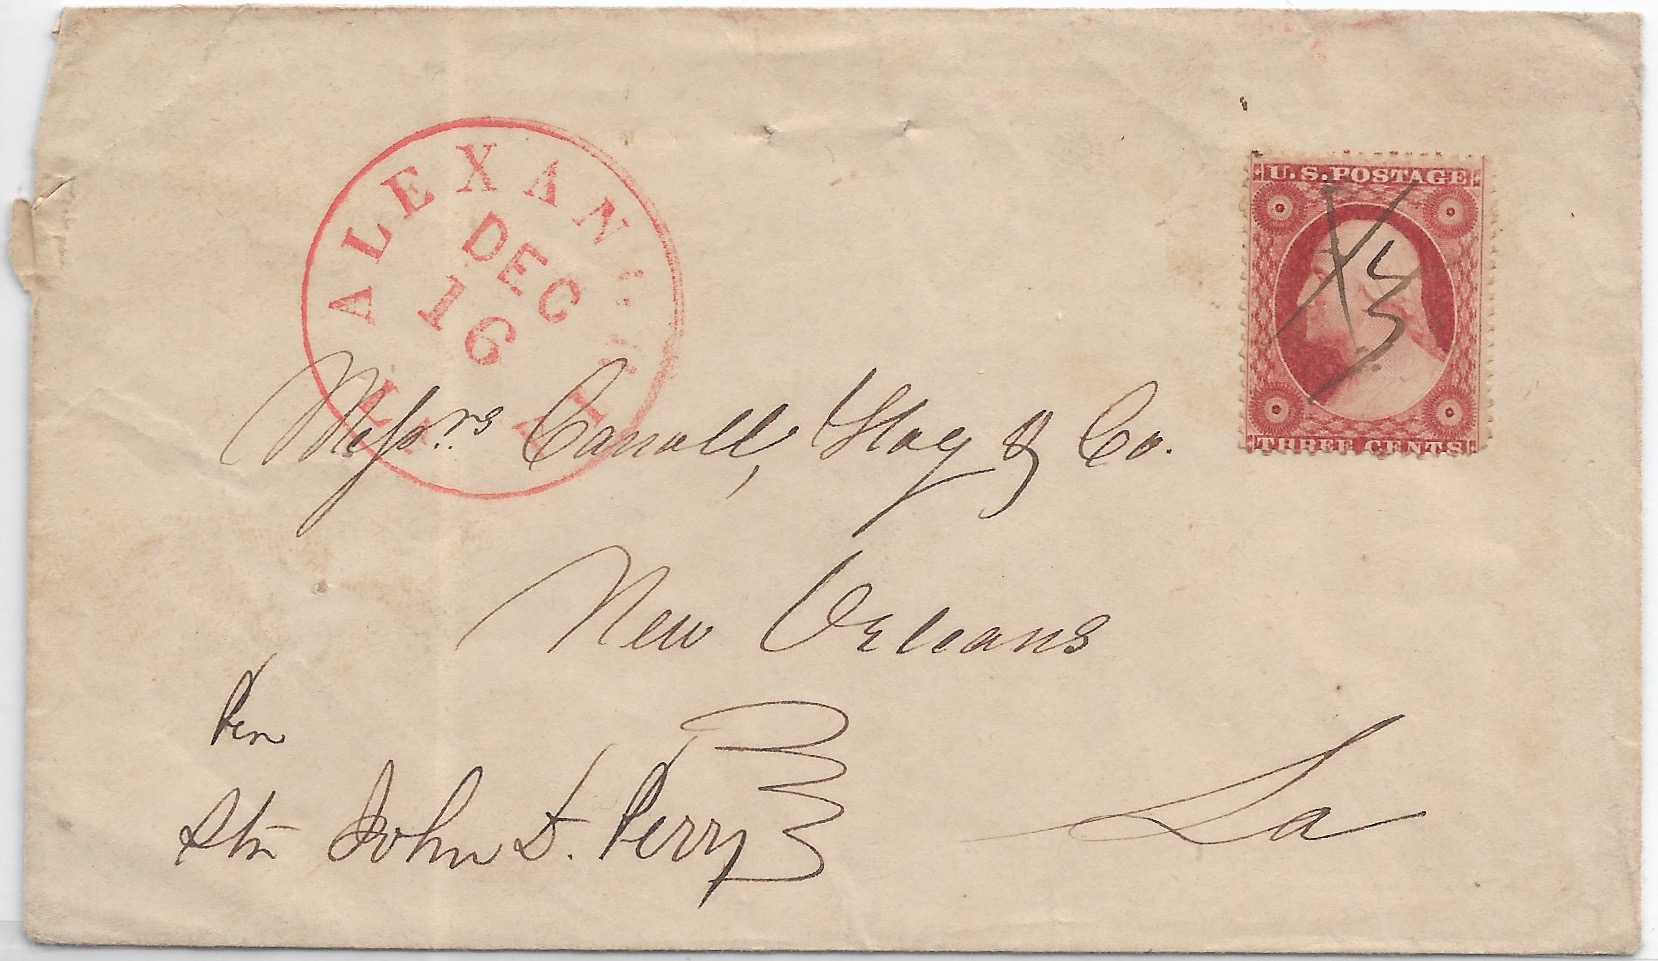 ALEXAN
DEC
16
LA
U.S. POSTAGE
THREE CENTS
Messrs Carroll, Hoy & Co.
New Orleans
La
Per
Str John D. Perry